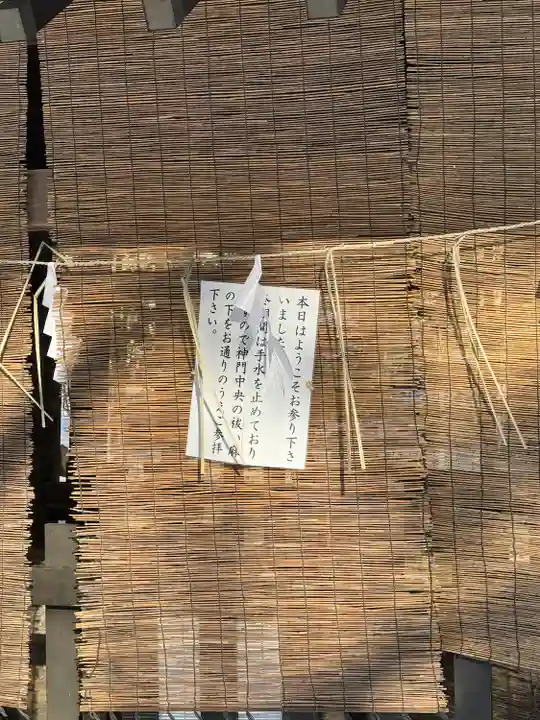 本日はようこそお参り下さ
いました
期間は手水を止めており
すので神門中央の祓い麻
の下をお通りのうえご参拝
下さい。